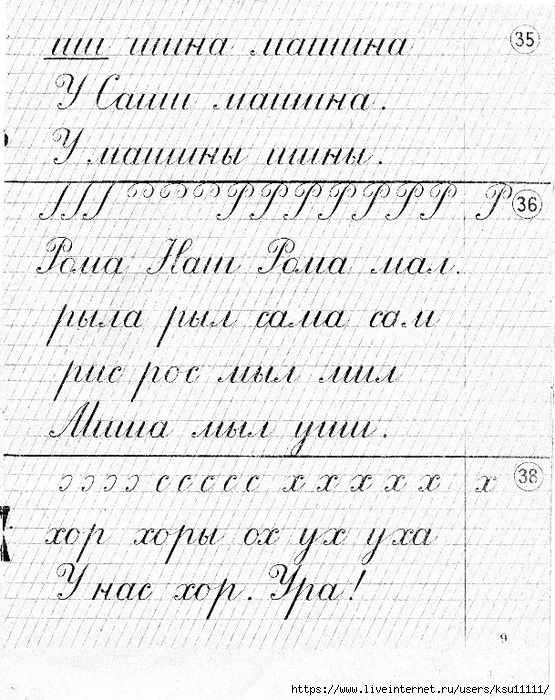 иш шина машина 35
У Саши машина.
У машины шины.
Р Р Р Р Р Р Р Р 36
Рома Наш Рома мал.
рыла рыл сама сам
рис рос мыл мил
Миша мыл уши.
э э э э с с с с с х х х х х х 38
хор хоры ох ух уха
У нас хор. Ура!
9
https://www.liveinternet.ru/users/ksu11111/